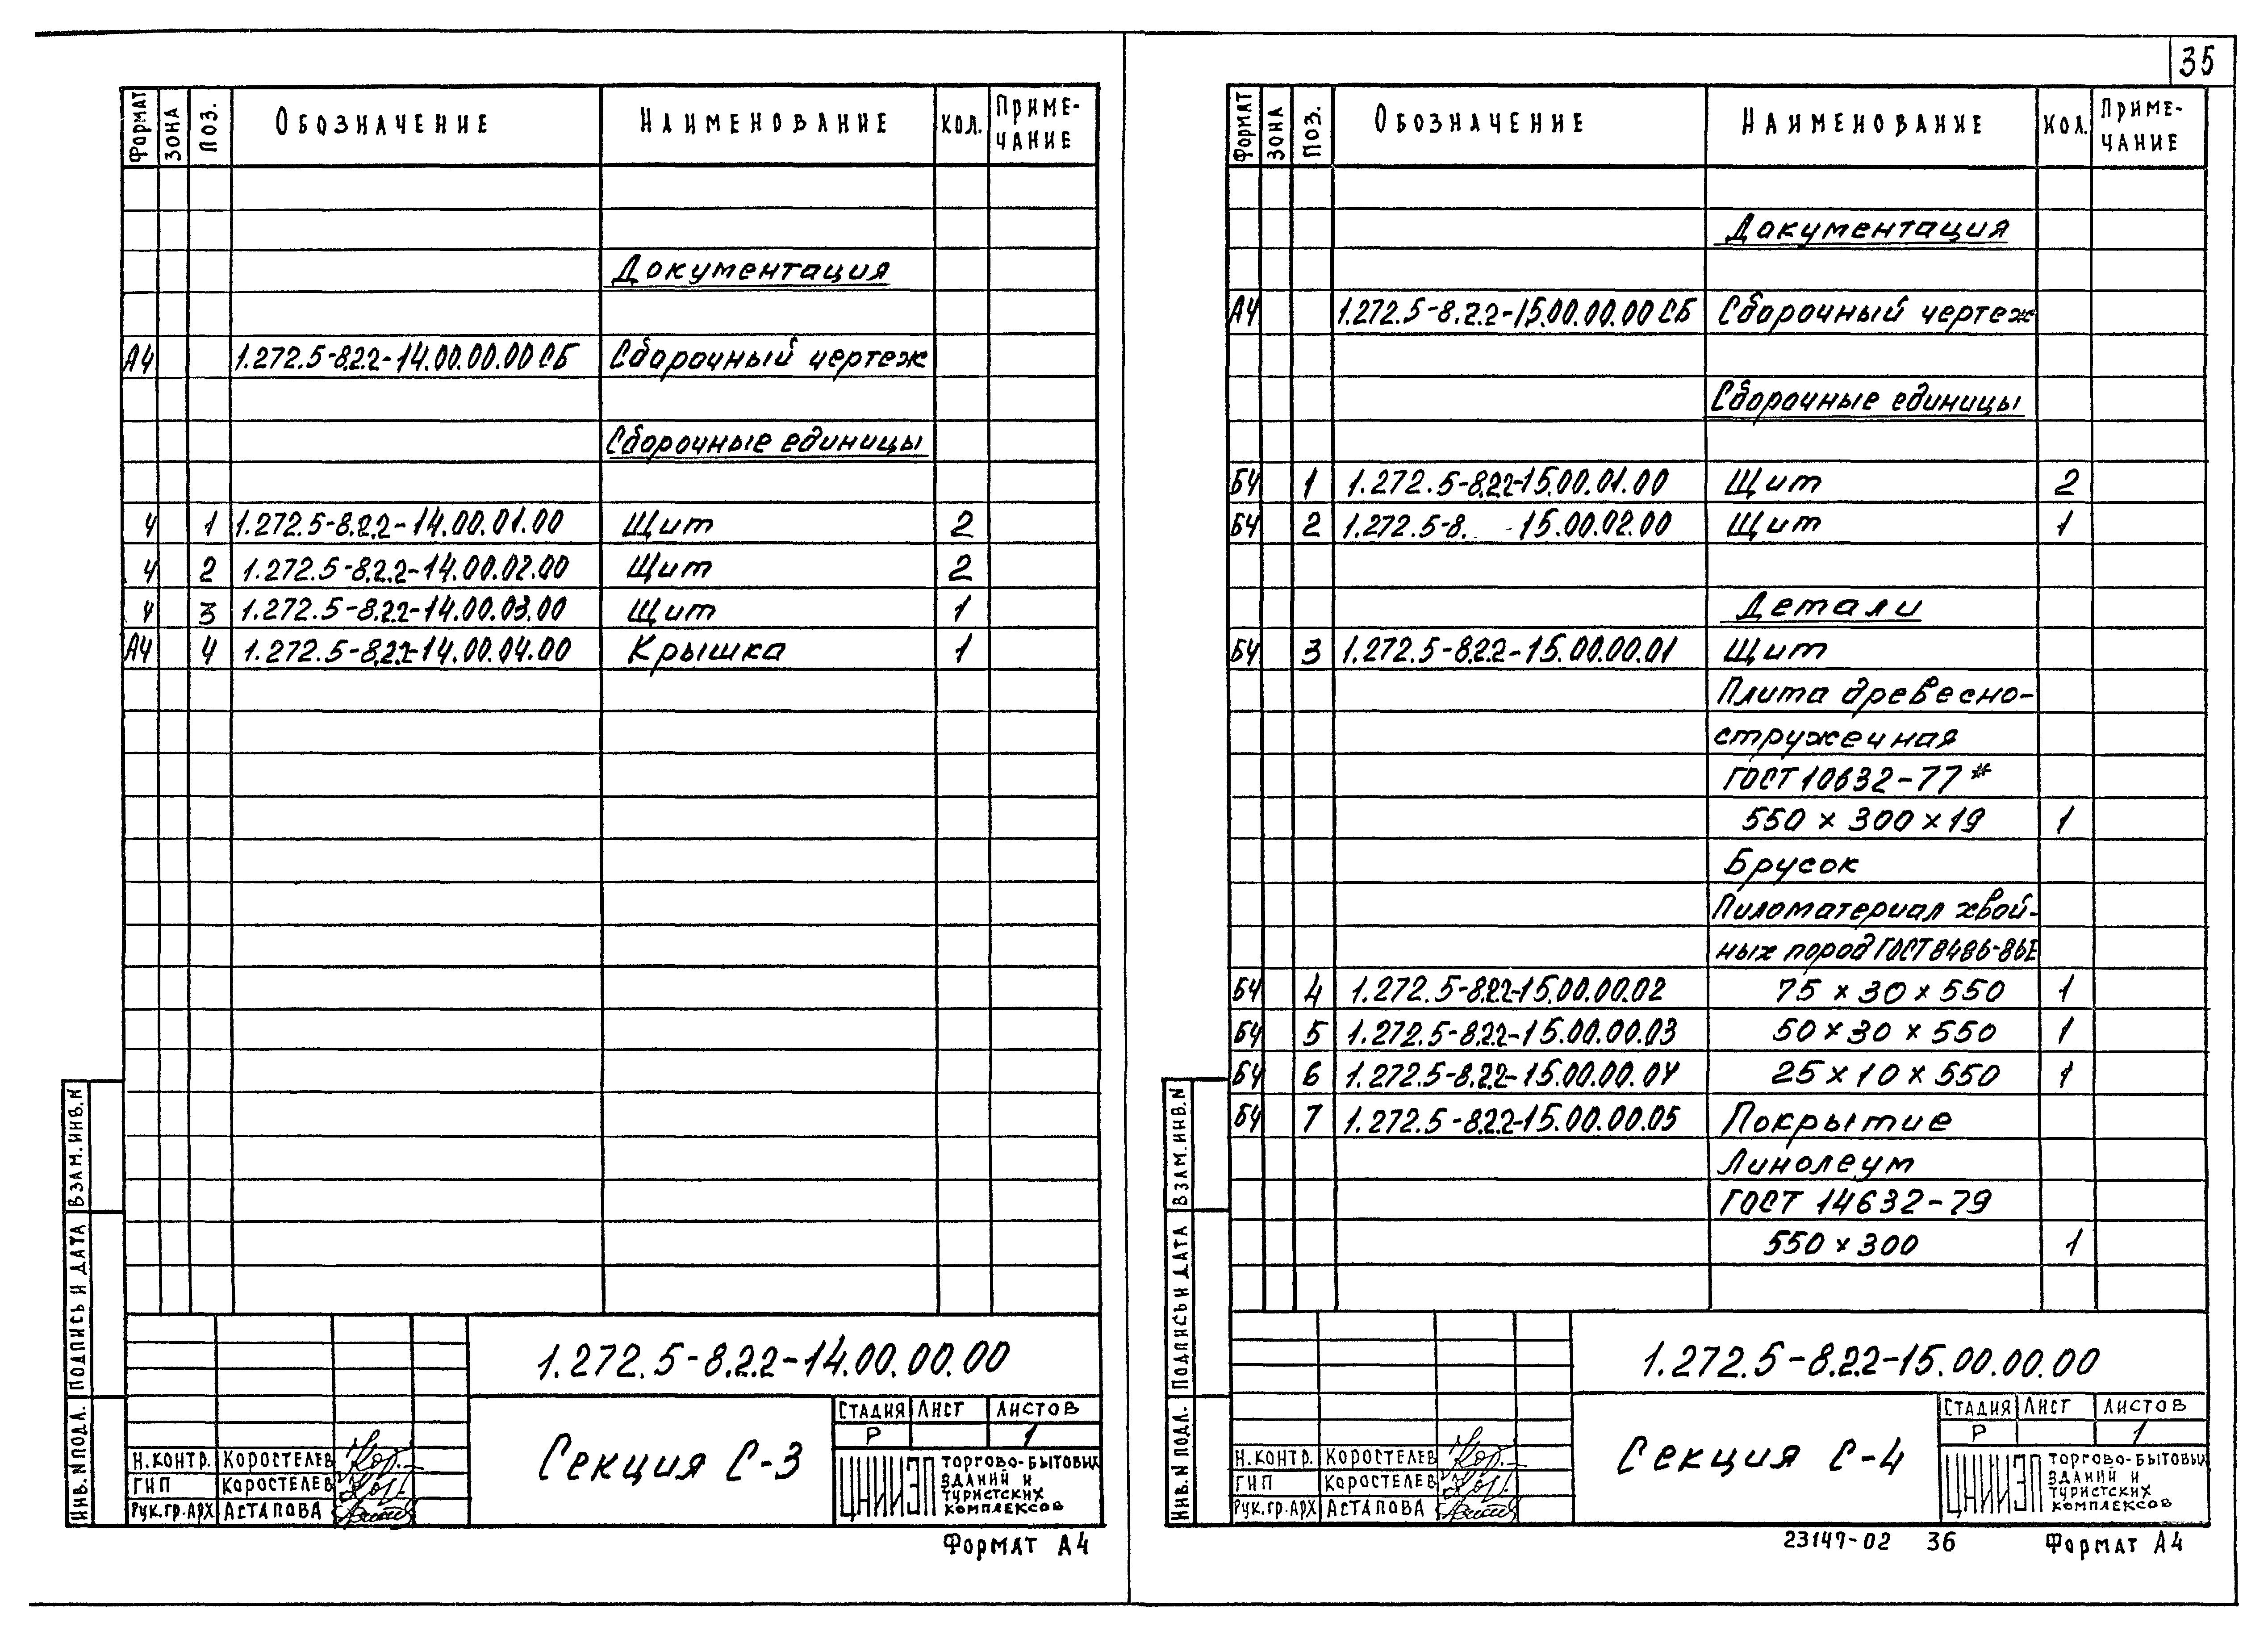 35
ФОРМАТ ЗОНА ПОЗ. ОБОЗНАЧЕНИЕ НАИМЕНОВАНИЕ КОЛ. ПРИМЕ-
ЧАНИЕ
Документация
А4 1.272.5-8.2.2-14.00.00.00 СБ Сборочный чертеж
Сборочные единицы
4 1 1.272.5-8.2.2-14.00.01.00 Щит 2
4 2 1.272.5-8.2.2-14.00.02.00 Щит 2
4 3 1.272.5-8.2.2-14.00.03.00 Щит 1
А4 4 1.272.5-8.2.2-14.00.04.00 Крышка 1
ИНВ. N ПОДЛ. ПОДПИСЬ И ДАТА ВЗАМ. ИНВ. N
1.272.5-8.2.2-14.00.00.00
Секция С-3
СТАДИЯ ЛИСТ ЛИСТОВ
Р 1
Н.КОНТР. КОРОСТЕЛЕВ
ГИП КОРОСТЕЛЕВ
РУК.ГР.АРХ АСТАПОВА
ЦНИИЭП ТОРГОВО-БЫТОВЫХ
ЗДАНИЙ И
ТУРИСТСКИХ
КОМПЛЕКСОВ
ФОРМАТ А4
ФОРМАТ ЗОНА ПОЗ. ОБОЗНАЧЕНИЕ НАИМЕНОВАНИЕ КОЛ. ПРИМЕ-
ЧАНИЕ
Документация
А4 1.272.5-8.2.2-15.00.00.00 СБ Сборочный чертеж
Сборочные единицы
Б4 1 1.272.5-8.2.2-15.00.01.00 Щит 2
Б4 2 1.272.5-8. 15.00.02.00 Щит 1
Детали
Б4 3 1.272.5-8.2.2-15.00.00.01 Щит
Плита древесно-
стружечная
ГОСТ 10632-77*
550 × 300 × 19 1
Брусок
Пиломатериал хвой-
ных пород ГОСТ 8486-86Е
Б4 4 1.272.5-8.2.2-15.00.00.02 75 × 30 × 550 1
Б4 5 1.272.5-8.2.2-15.00.00.03 50 × 30 × 550 1
Б4 6 1.272.5-8.2.2-15.00.00.04 25 × 10 × 550 1
Б4 7 1.272.5-8.2.2-15.00.00.05 Покрытие
Линолеум
ГОСТ 14632-79
550 × 300 1
ИНВ. N ПОДЛ. ПОДПИСЬ И ДАТА ВЗАМ. ИНВ. N
1.272.5-8.2.2-15.00.00.00
Секция С-4
СТАДИЯ ЛИСТ ЛИСТОВ
Р 1
Н.КОНТР. КОРОСТЕЛЕВ
ГИП КОРОСТЕЛЕВ
РУК.ГР.АРХ АСТАПОВА
ЦНИИЭП ТОРГОВО-БЫТОВЫХ
ЗДАНИЙ И
ТУРИСТСКИХ
КОМПЛЕКСОВ
23147-02 36 ФОРМАТ А4